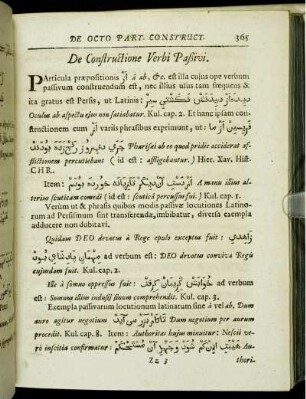 DE OCTO PART. CONSTRUCT. 365
De Constructione Verbi Passivi.
PArticula præpositionis از à ab, &c. est illa cujus ope verbum
passivum construendum est, nec illius usus tam frequens &
ita gratus est Persis, ut Latinis:
Oculus ab aspectu ejus non satiabatur. Kul. cap. 2. Et hanc ipsam con-
structionem cum از variis phrasibus exprimunt, ut:
Pharisæi ab eo quod pridie acciderat af-
flictionem percutiebant (id est: affligebantur.) Hier. Xav. Hist.
CHR.
Item: A manu illius al-
terius scuticam comedi (id est: scuticâ percussus sui.) Kul. cap. 1.
Verùm ut & phrasis quibus modis passivæ locutiones Latino-
rum ad Persismum sint transferendæ, imbibatur, diversa exempla
adducere non dubitari.
Quidam DEO devotus à Rege epulo exceptus fuit: زاهدي
مهمان پادشاهي بود ad verbum est: DEO devotus conviva Regis
cujusdam fuit. Kul. cap. 2.
Ille à somno oppressus fuit: خوابش گريبان گرفت ad verbum
est: Somnus illius indusij sinum comprehendit. Kul. cap. 3.
Exempla passivarum locutionum latinarum sine à vel ab. Dum
auro agitur negotium Dum negotium per aurum
procedit. Kul. cap. 8. Item: Authoritas hujus minuitur: Nescii ve-
rò inscitia confirmatur: Au-
Zz 3 thori.